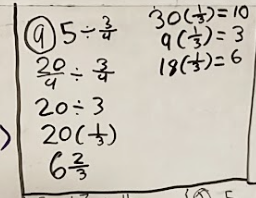 9 5 ÷ 3/4
20/4 ÷ 3/4
20 ÷ 3
20(1/3)
6 2/3
30(1/3) = 10
9(1/3) = 3
18(1/3) = 6